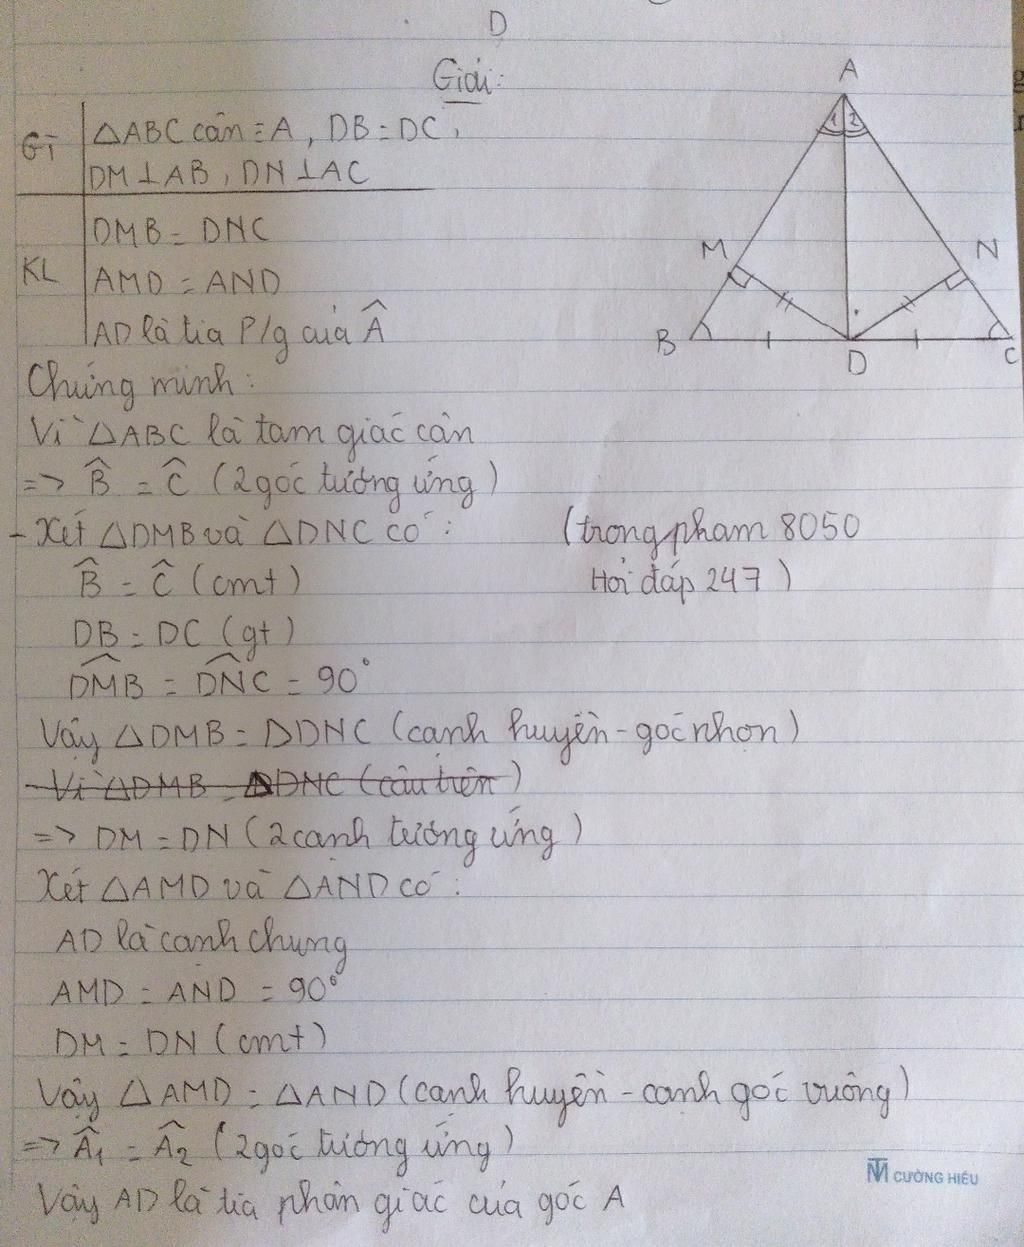 D
Giải:
GT
△ABC cân ≡ A, DB = DC,
DM ⊥ AB, DN ⊥ AC
KL
DMB = DNC
AMD = AND
AD là tia P/g của Â
A
1 2
M
N
B
D
C
Chứng minh:
Vì △ABC là tam giác cân
=> B̂ = Ĉ (2 góc tương ứng)
- Xét △DMB và △DNC có:
(trongpham 8050
Hỏi đáp 247)
B̂ = Ĉ (cmt)
DB = DC (gt)
DMB̂ = DNĈ = 90°
Vậy △DMB = DDNC (cạnh huyền - góc nhọn)
- Vì △DMB = △DNC (câu trên)
=> DM = DN (2 cạnh tương ứng)
Xét △AMD và △AND có:
AD là cạnh chung
AMD = AND = 90°
DM = DN (cmt)
Vậy △AMD = △AND (cạnh huyền - cạnh góc vuông)
=> Â₁ = Â₂ (2 góc tương ứng)
Vậy AD là tia phân giác của góc A
CƯỜNG HIẾU